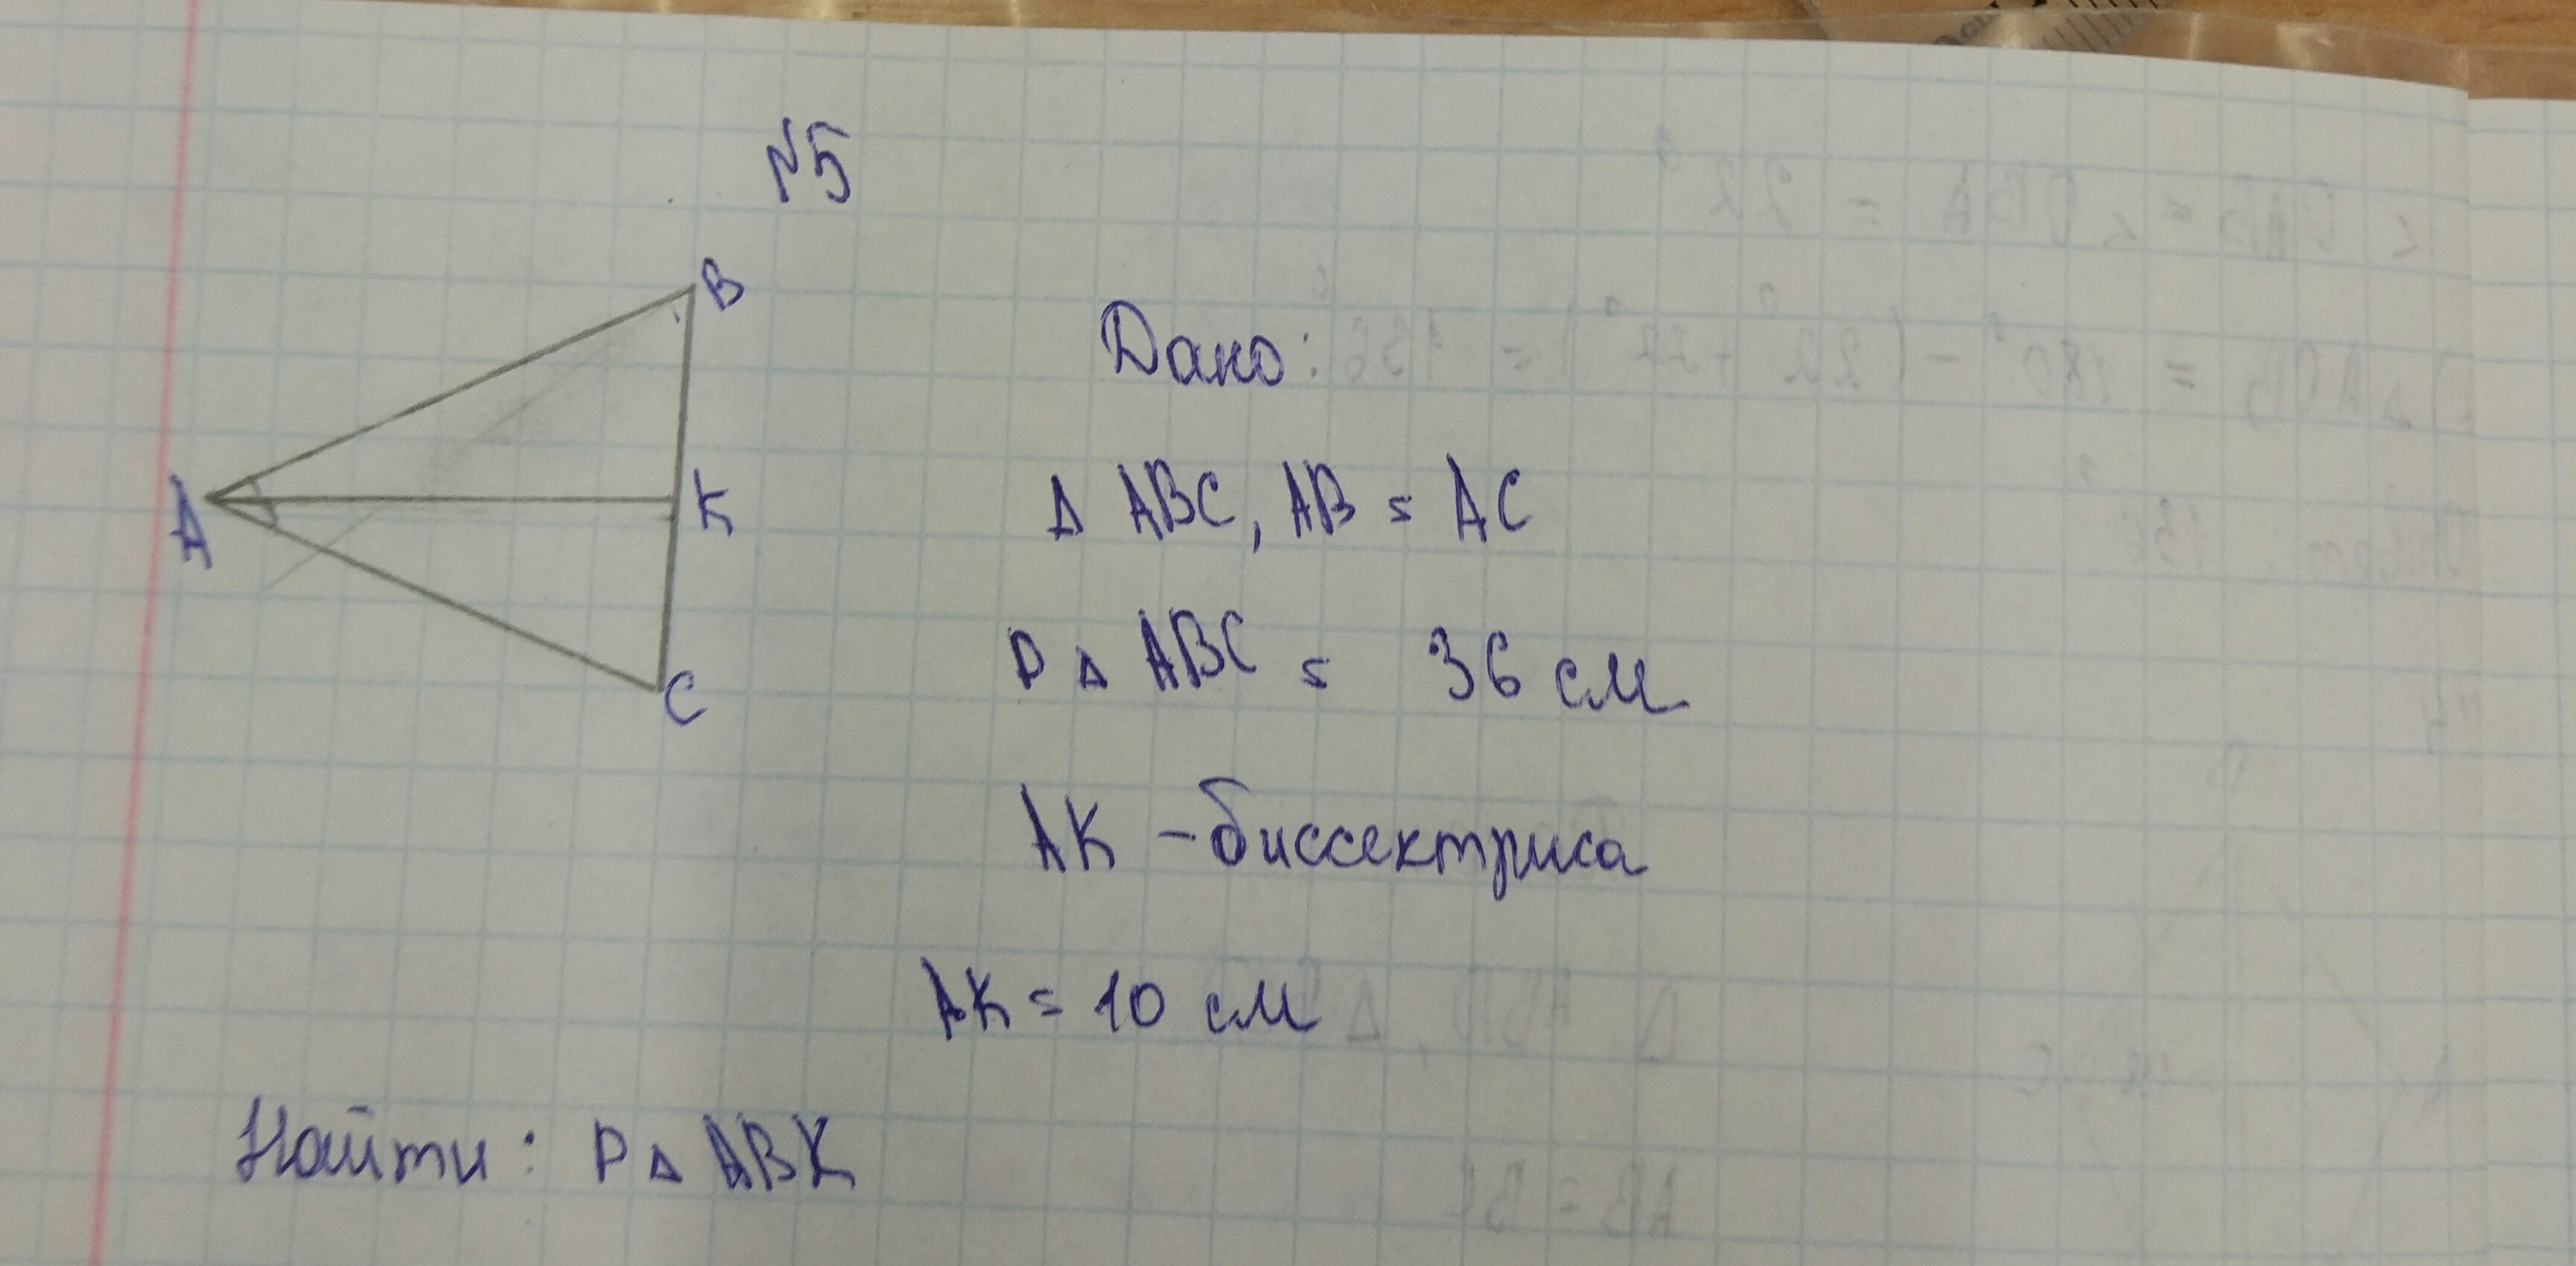 №5
B
A
K
C
Дано:
Δ ABC, AB = AC
P Δ ABC = 36 см
AK - биссектриса
AK = 10 см
Найти: P Δ ABK